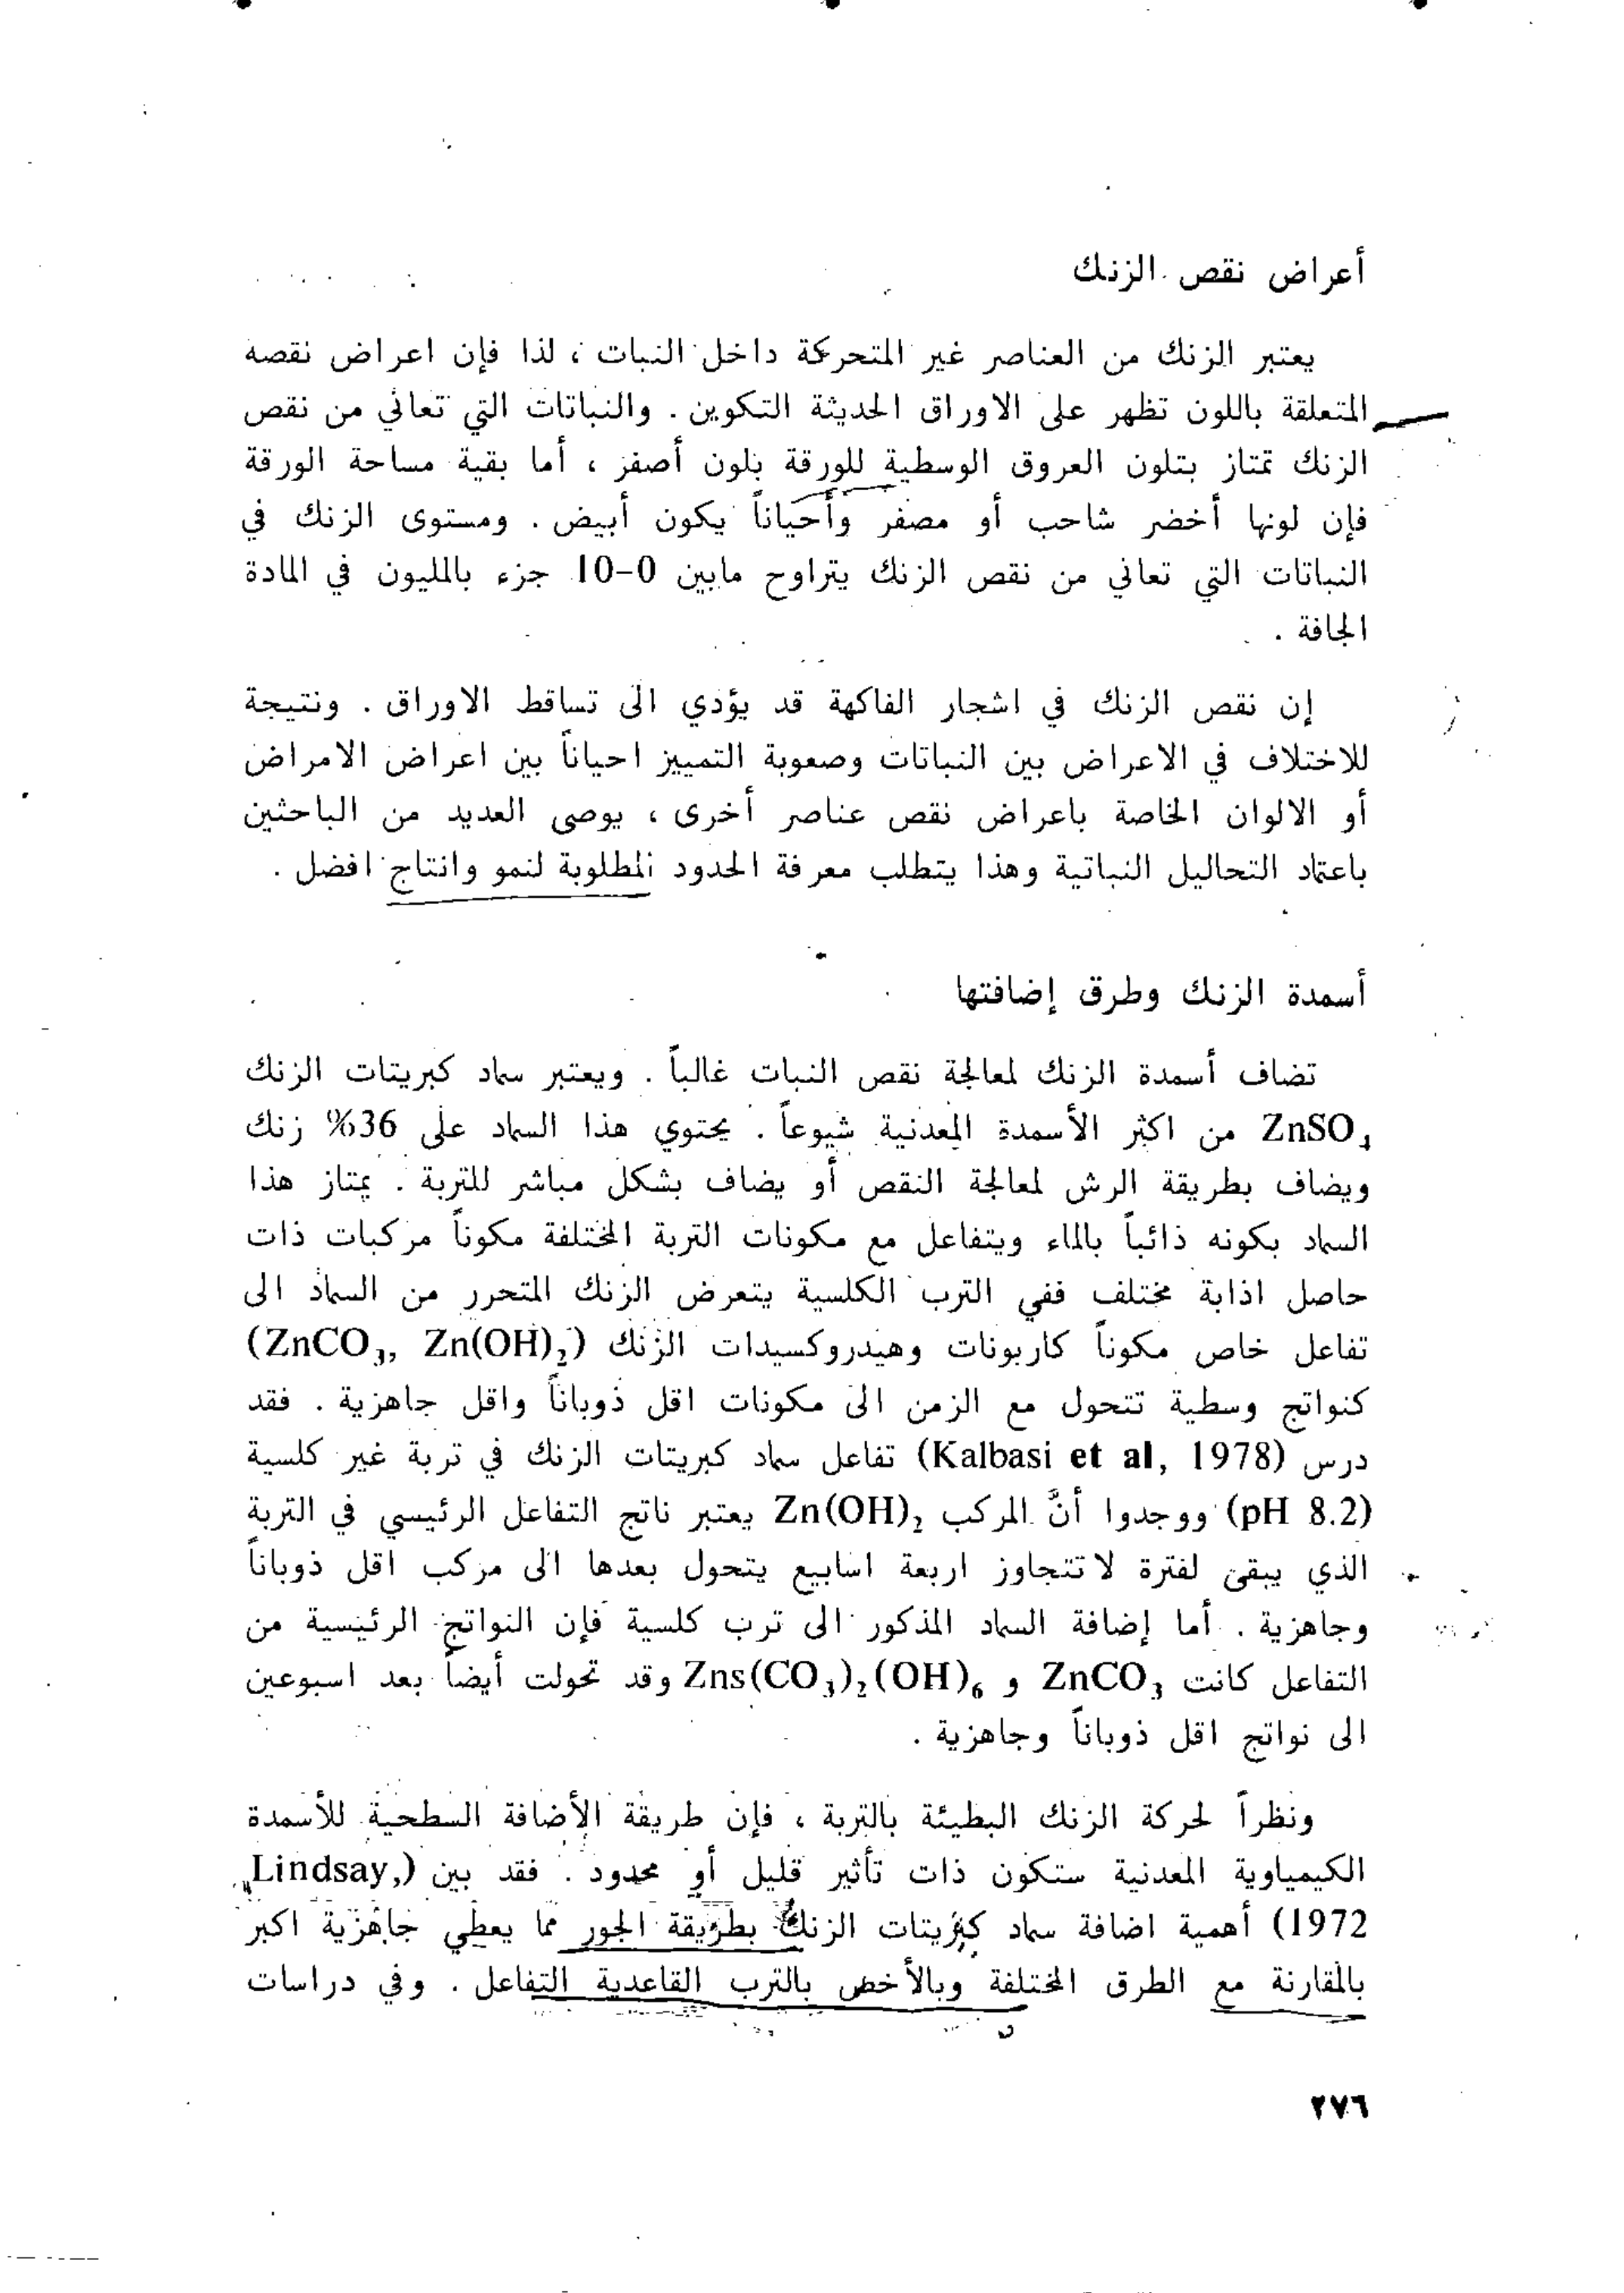 أعراض نقص الزنك
يعتبر الزنك من العناصر غير المتحركة داخل النبات ، لذا فإن اعراض نقصه
المتعلقة باللون تظهر على الاوراق الحديثة التكوين . والنباتات التي تعاني من نقص
الزنك تمتاز بتلون العروق الوسطية للورقة بلون أصفر ، أما بقية مساحة الورقة
فإن لونها أخضر شاحب أو مصفر وأحياناً يكون أبيض . ومستوى الزنك في
النباتات التي تعاني من نقص الزنك يتراوح مابين 0-10 جزء بالمليون في المادة
الجافة .
إن نقص الزنك في اشجار الفاكهة قد يؤدي الى تساقط الاوراق . ونتيجة
للاختلاف في الاعراض بين النباتات وصعوبة التمييز احياناً بين اعراض الامراض
أو الالوان الخاصة باعراض نقص عناصر أخرى ، يوصى العديد من الباحثين
باعتماد التحاليل النباتية وهذا يتطلب معرفة الحدود المطلوبة لنمو وانتاج افضل .
أسمدة الزنك وطرق إضافتها
تضاف أسمدة الزنك لمعالجة نقص النبات غالباً . ويعتبر سماد كبريتات الزنك
ZnSO₄ من اكثر الأسمدة المعدنية شيوعاً . يحتوي هذا السماد على 36% زنك
ويضاف بطريقة الرش لمعالجة النقص أو يضاف بشكل مباشر للتربة . يمتاز هذا
السماد بكونه ذائباً بالماء ويتفاعل مع مكونات التربة المختلفة مكوناً مركبات ذات
حاصل اذابة مختلف ففي الترب الكلسية يتعرض الزنك المتحرر من السماد الى
تفاعل خاص مكوناً كاربونات وهيدروكسيدات الزنك (ZnCO₃, Zn(OH)₂)
كنواتج وسطية تتحول مع الزمن الى مكونات اقل ذوباناً واقل جاهزية . فقد
درس (Kalbasi et al, 1978) تفاعل سماد كبريتات الزنك في تربة غير كلسية
(pH 8.2) ووجدوا أنَّ المركب Zn(OH)₂ يعتبر ناتج التفاعل الرئيسي في التربة
الذي يبقى لفترة لا تتجاوز اربعة اسابيع يتحول بعدها الى مركب اقل ذوباناً
وجاهزية . أما إضافة السماد المذكور الى ترب كلسية فإن النواتج الرئيسية من
التفاعل كانت ZnCO₃ و Zns(CO₃)₂(OH)₆ وقد تحولت أيضاً بعد اسبوعين
الى نواتج اقل ذوباناً وجاهزية .
ونظراً لحركة الزنك البطيئة بالتربة ، فإن طريقة الأضافة السطحية للأسمدة
الكيمياوية المعدنية ستكون ذات تأثير قليل أو محدود . فقد بين (Lindsay,
1972) أهمية اضافة سماد كبريتات الزنك بطريقة الجور مما يعطي جاهزية اكبر
بالمقارنة مع الطرق المختلفة وبالأخص بالترب القاعدية التفاعل . وفي دراسات
٢٧٦